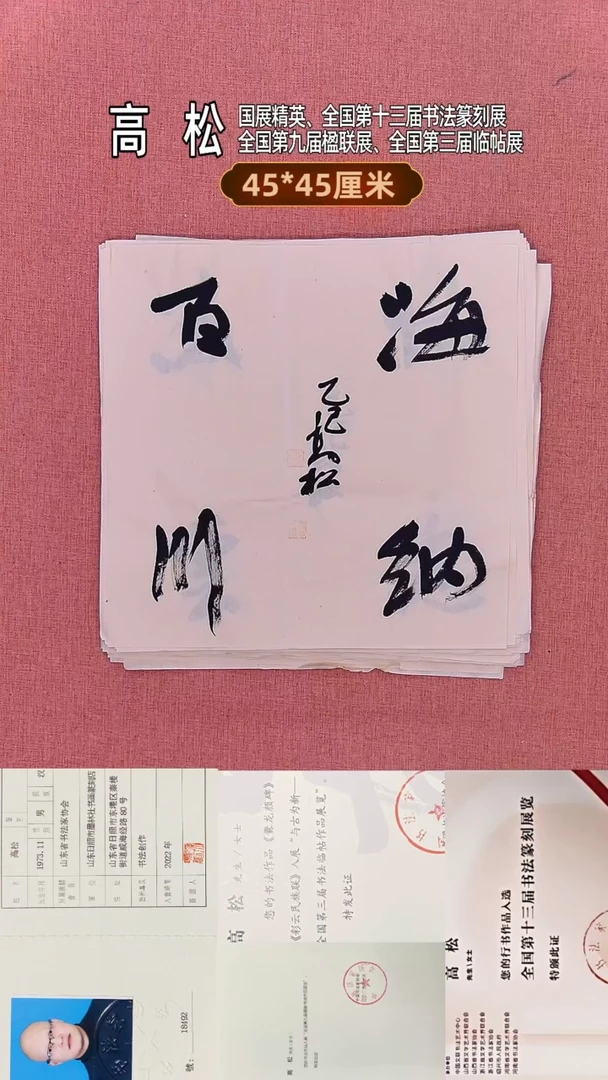 高 松
国展精英、全国第十三届书法篆刻展
全国第九届楹联展、全国第三届临帖展
45*45厘米
海纳
百川
乙巳高松
高松
1973.11
男
汉
山东省书法家协会
山东日照市墨林社书画篆刻店
山东省日照市东港区秦楼
街道威海路80号
书法创作
2022年
18492
高松 先生/女士
您的书法作品《爨龙颜碑》
《彩云民族联》入展“与古为新——
全国第三届书法临帖作品展览”。
特发此证
高松
先生\女士
您的行书作品入选
全国第十三届书法篆刻展览
特颁此证